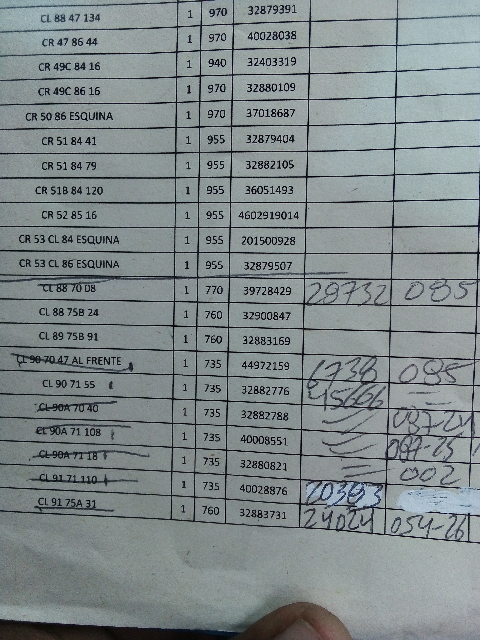 CL 88 47 134 1 970 32879391
CR 47 86 44 1 970 40028038
CR 49C 84 16 1 940 32403319
CR 49C 86 16 1 970 32880109
CR 50 86 ESQUINA 1 970 37018687
CR 51 84 41 1 955 32879404
CR 51 84 79 1 955 32882105
CR 51B 84 120 1 955 36051493
CR 52 85 16 1 955 4602919014
CR 53 CL 84 ESQUINA 1 955 201500928
CR 53 CL 86 ESQUINA 1 955 32879507
CL 88 70 08 1 770 39728429 28732 085
CL 88 75B 24 1 760 32900847
CL 89 75B 91 1 760 32883169
CL 90 70 47 AL FRENTE 1 735 44972159 1738 085
CL 90 71 55 1 735 32882776 45666
CL 90A 70 40 1 735 32882788 087-24
CL 90A 71 108 1 735 40008551 087-25
CL 90A 71 18 1 735 32880821 002
CL 91 71 110 1 735 40028876 20383
CL 91 75A 31 1 760 32883731 24024 054-26